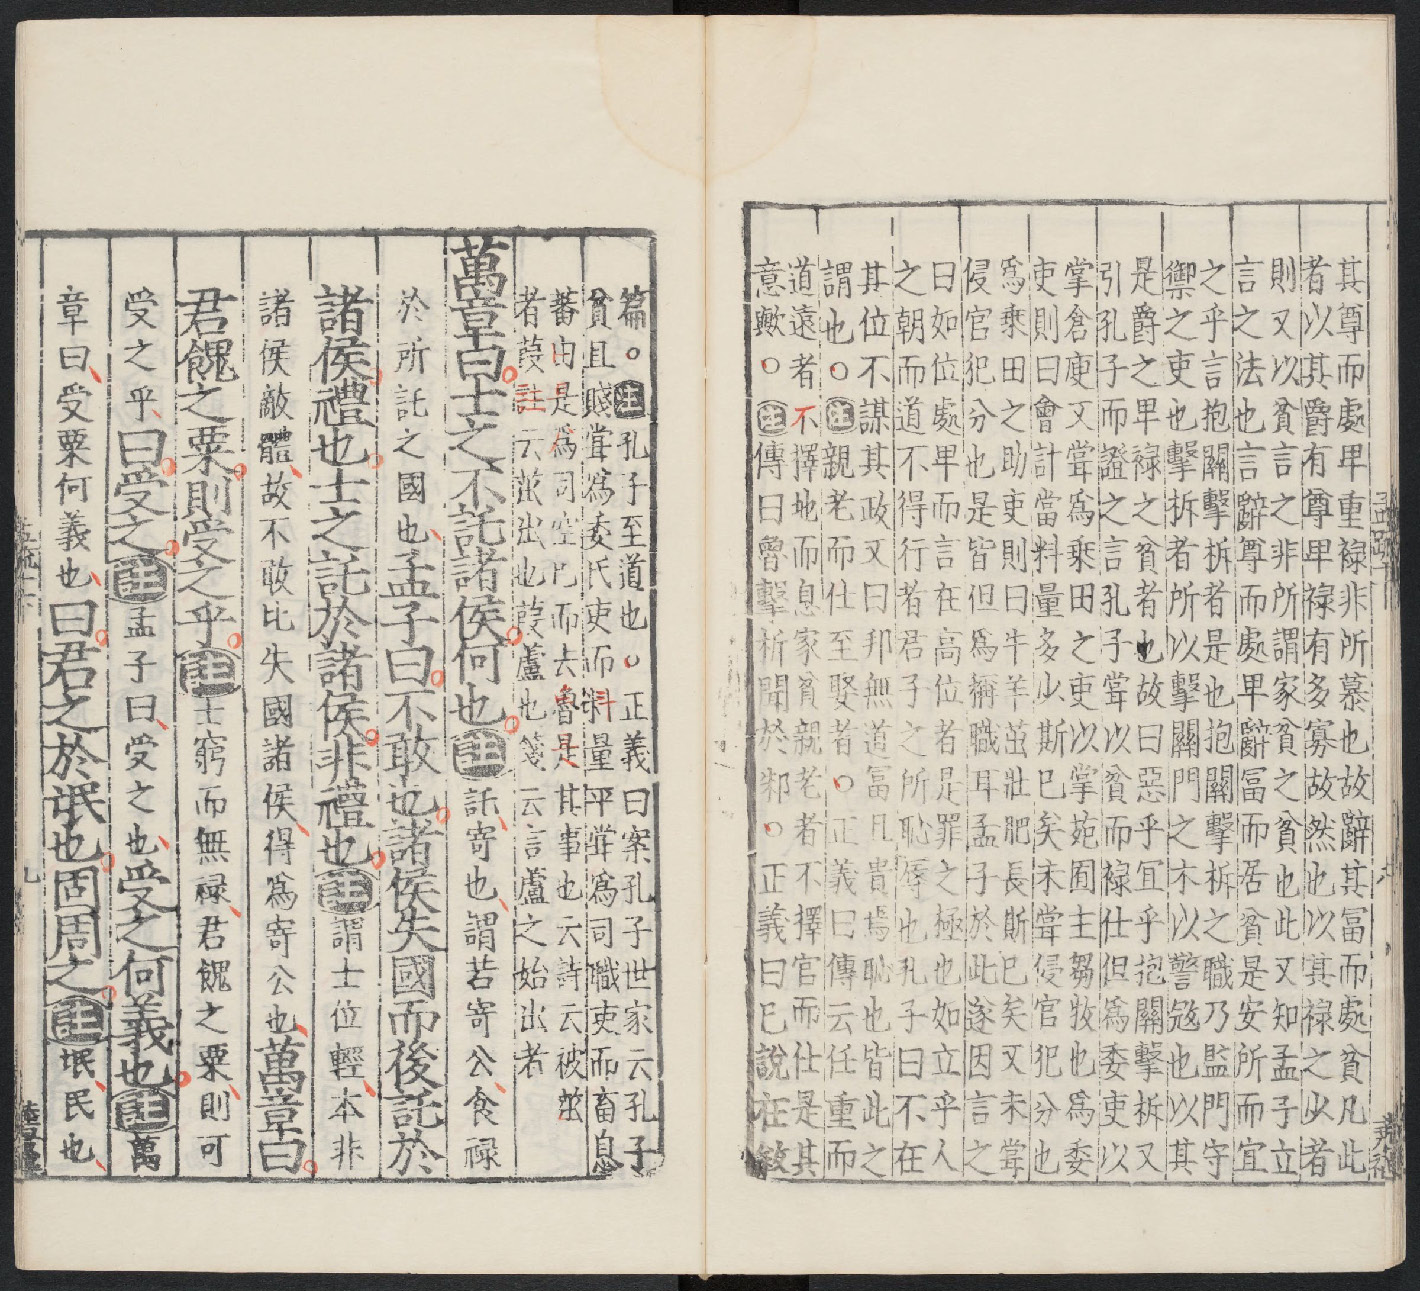 其尊而處卑重祿非所慕也故辭其冨而處貧凡此
者以其爵有尊卑祿有多寡故然也以其祿之以者
則又以貧言之非所謂家貧之貧也此又知孟子立
言之法也言辭尊而處卑辭冨而居貧是安所而宜
之乎言抱關擊柝者是也抱關擊柝之職乃監門守
禦之吏也擊柝者所以擊關門之木以警寇也以其
是爵之卑祿之貧者也故曰惡乎冝乎抱關擊柝又
引孔子而證之言孔子甞以貧而祿仕但爲委吏以
掌倉庾又甞爲乘田之吏以掌苑囿主芻牧也爲委
吏則曰會計當料量多少斯巳矣未甞侵官犯分也
爲乘田之助吏則曰牛羊茁壯肥長斯巳矣又未甞
侵官犯分也是皆但爲稱職耳孟子於此遂因言之
曰如位處卑而言在高位者是罪之極也如立乎人
之朝而道不得行者君子之所恥辱也孔子曰不在
其位不謀其政又曰邦無道冨且貴焉恥也皆此之
謂也○注親老而仕至娶者○正義曰傳云任重而
道遠者不擇地而息家貧親老者不擇官而仕是其
意歟○注傳曰魯擊柝聞於邾○正義曰巳說在敘
篇○注孔子至道也○正義曰案孔子世家云孔子
貧且賤甞爲委氏吏而料量平甞爲司職吏而畜息
蕃由是爲司空巳而去魯是其事也云詩云被茁
者葭註云茁出也葭蘆也箋云言蘆之始出者
萬章曰士之不託諸侯何也注託寄也謂若寄公食祿
於所託之國也孟子曰不敢也諸侯失國而後託於
諸侯禮也士之託於諸侯非禮也注謂士位輕本非
諸侯敵體故不敢比失國諸侯得爲寄公也萬章曰
君餽之粟則受之乎注士窮而無祿君餽之粟則可
受之乎曰受之注孟子曰受之也受之何義也注萬
章曰受粟何義也曰君之於氓也固周之注氓民也